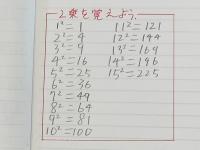 2乗を覚えよう。
1²=1
2²=4
3²=9
4²=16
5²=25
6²=36
7²=49
8²=64
9²=81
10²=100
11²=121
12²=144
13²=169
14²=196
15²=225